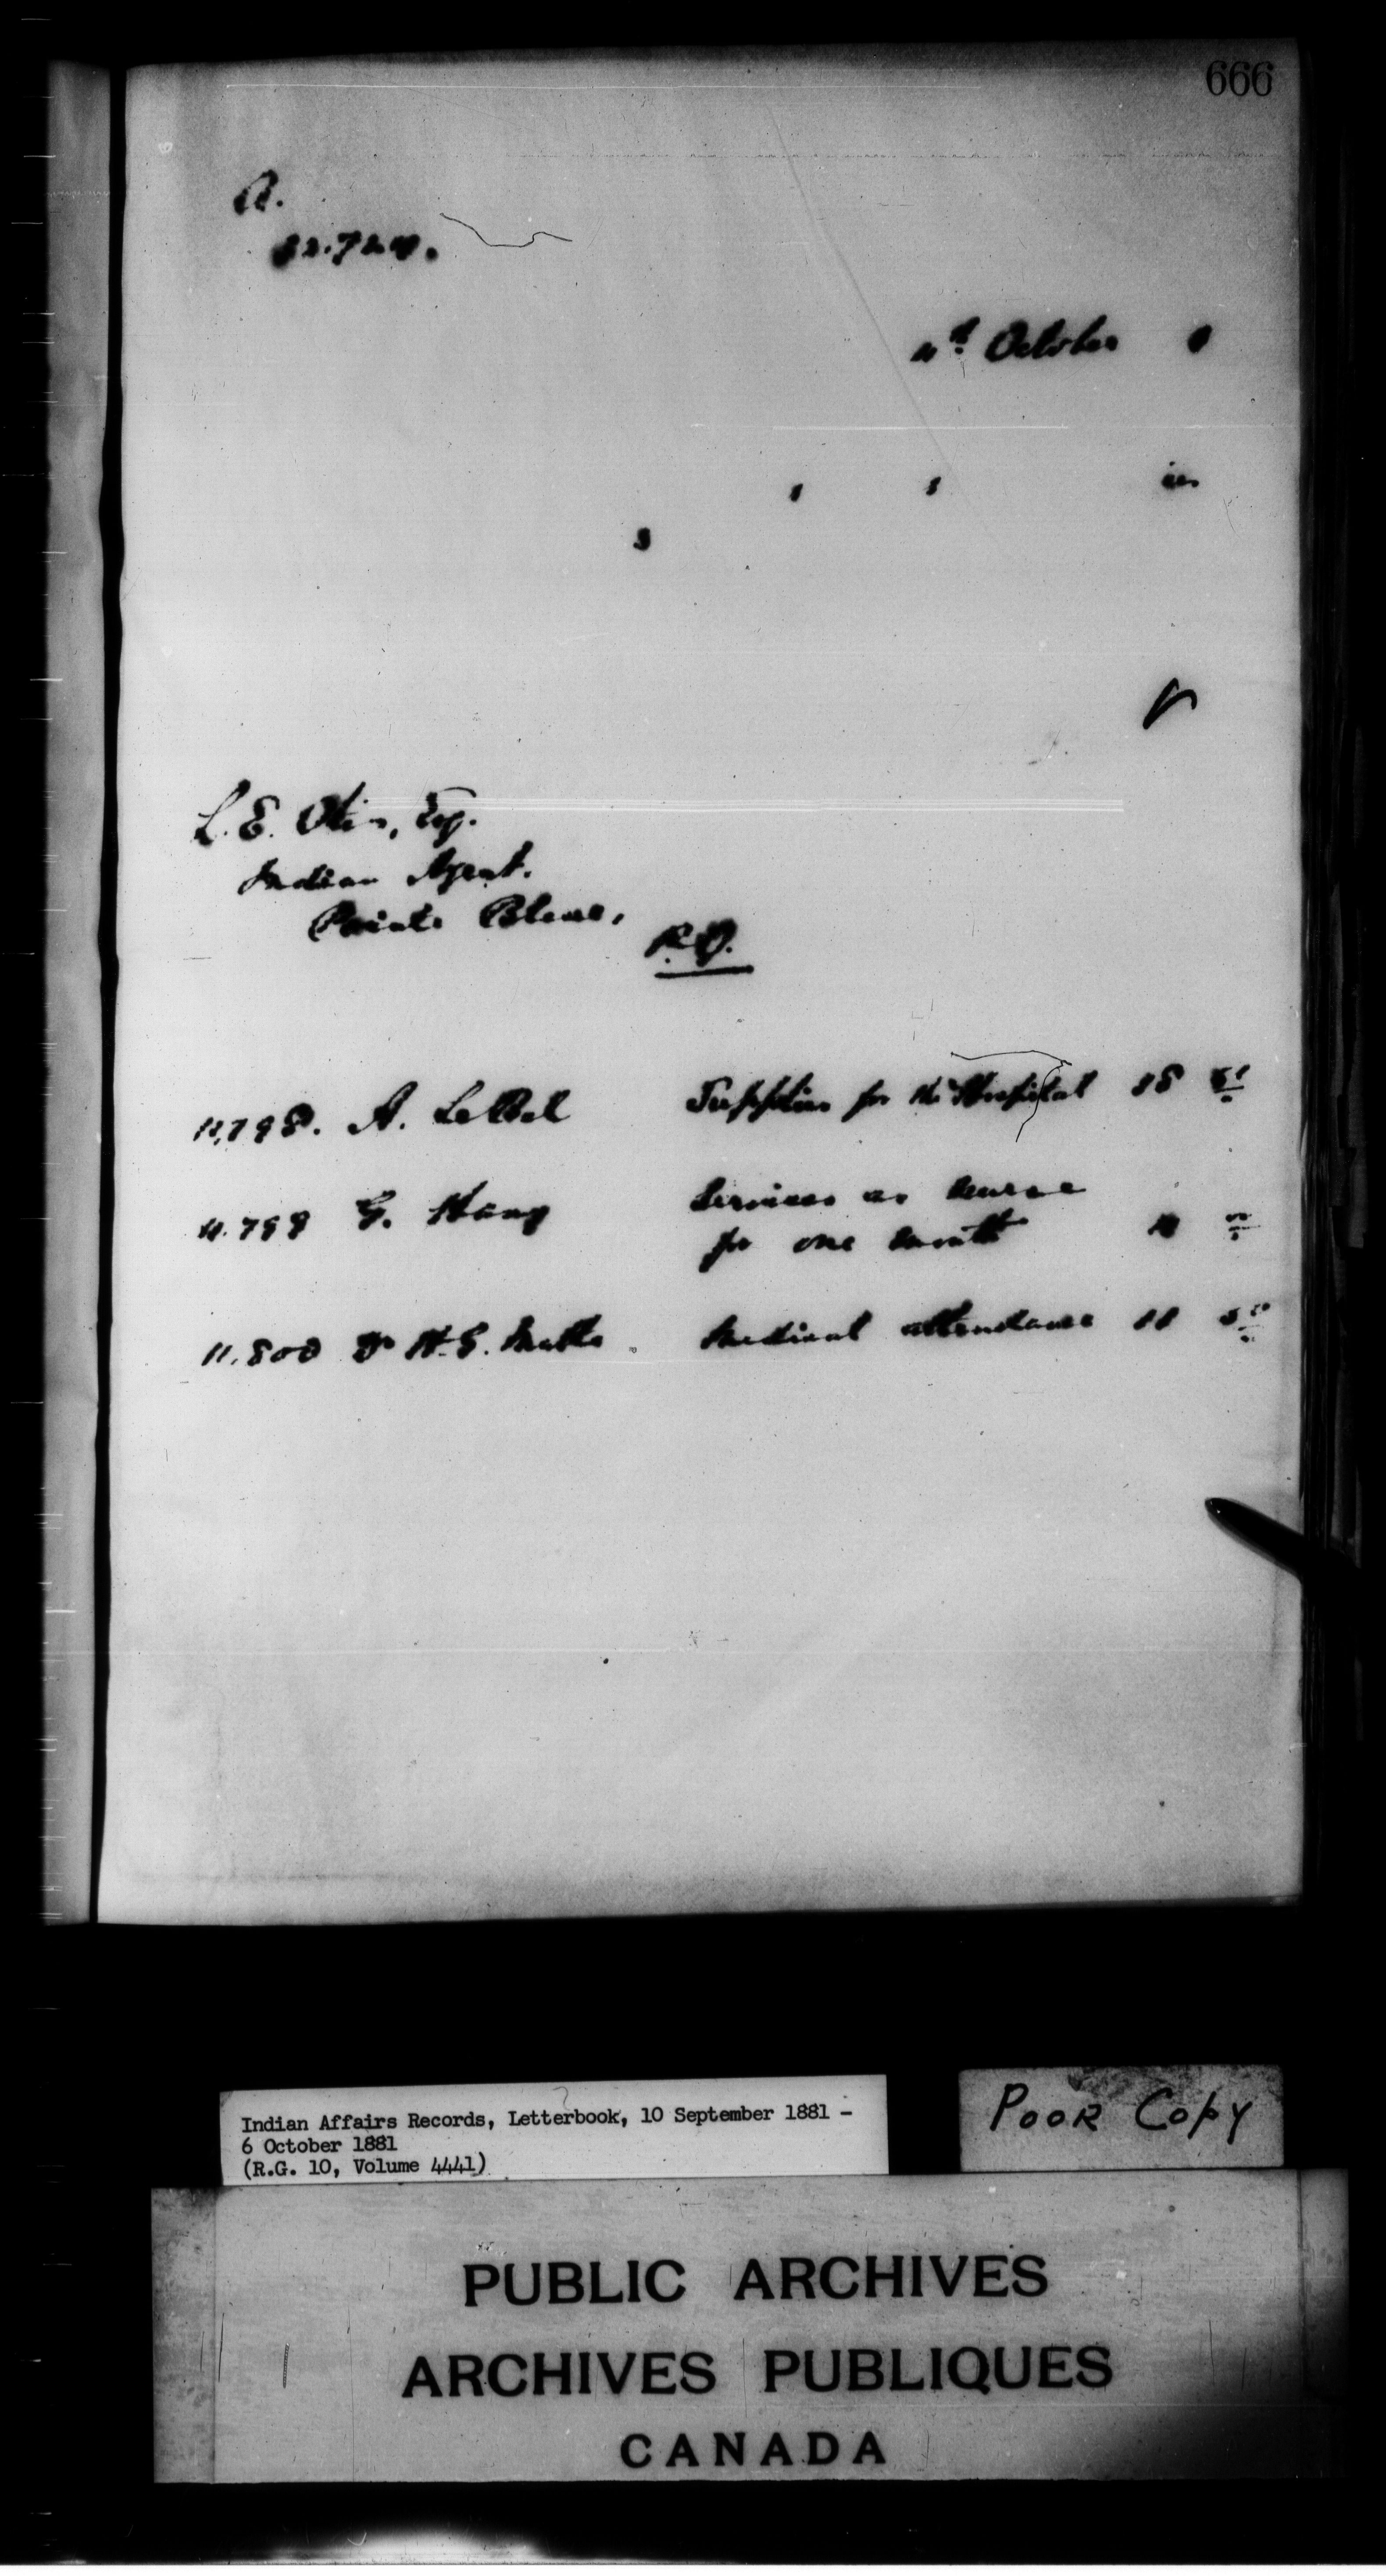 666
A.
32.724.
4th October 1
1 1 in
3
L. E. Otis, Esq.
Indian Agent.
Pointe Bleue,
P.Q.
11,798. A. LeBel Supplies for the Hospital 18
11.799 G. Services as nurse
for one month
11.800 Dr H. G. Medical attendance 11
Indian Affairs Records, Letterbook, 10 September 1881 -
6 October 1881
(R.G. 10, Volume 4441)
POOR COPY
PUBLIC ARCHIVES
ARCHIVES PUBLIQUES
CANADA